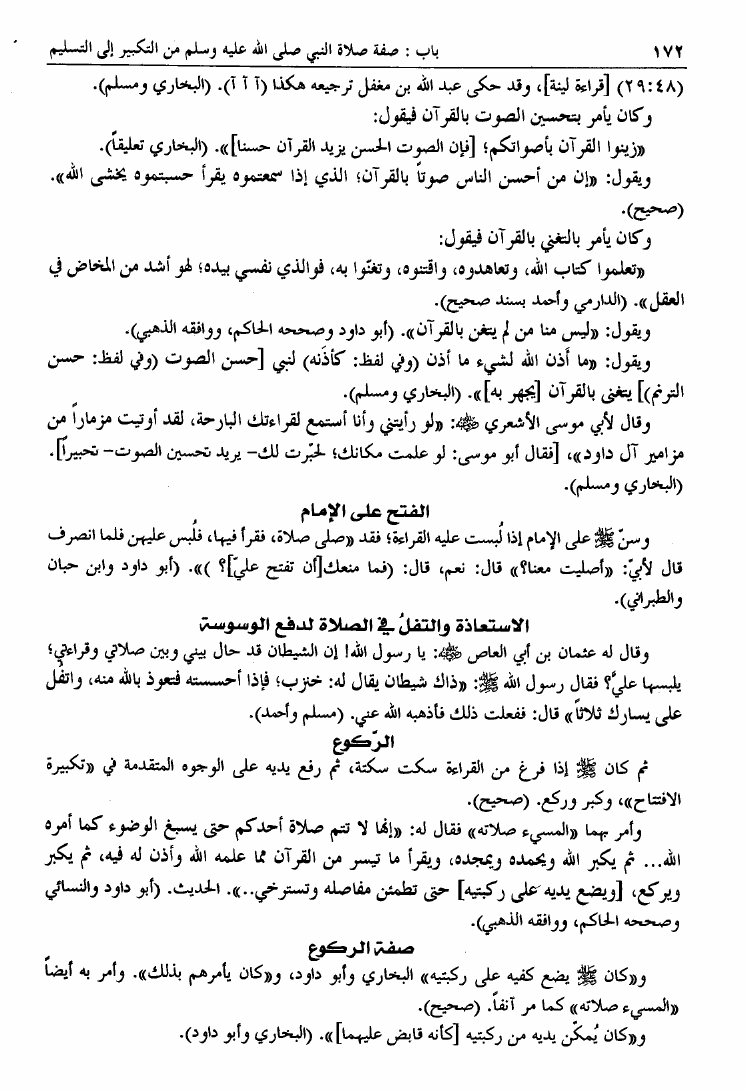 ١٧٢ باب : صفة صلاة النبي صلى الله عليه وسلم من التكبير إلى التسليم
(٢٩:٤٨) [قراءة لينة]، وقد حكى عبد الله بن مغفل ترجيعه هكذا (آ آ آ). (البخاري ومسلم).
وكان يأمر بتحسين الصوت بالقرآن فيقول:
«زينوا القرآن بأصواتكم؛ [فإن الصوت الحسن يزيد القرآن حسنا]». (البخاري تعليقاً).
ويقول: «إن من أحسن الناس صوتاً بالقرآن؛ الذي إذا سمعتموه يقرأ حسبتموه يخشى الله».
(صحيح).
وكان يأمر بالتغني بالقرآن فيقول:
«تعلموا كتاب الله، وتعاهدوه، واقتنوه، وتغنّوا به، فوالذي نفسي بيده؛ لهو أشد من المخاض في
العقل». (الدارمي وأحمد بسند صحيح).
ويقول: «ليس منا من لم يتغن بالقرآن». (أبو داود وصححه الحاكم، ووافقه الذهبي).
ويقول: «ما أَذن الله لشيء ما أذن (وفي لفظ: كأذَنه) لنبي [حسن الصوت (وفي لفظ: حسن
الترنم)] يتغنى بالقرآن [يجهر به]». (البخاري ومسلم).
وقال لأبي موسى الأشعري ﷺ: «لو رأيتني وأنا أستمع لقراءتك البارحة، لقد أوتيت مزماراً من
مزامير آل داود»، [فقال أبو موسى: لو علمت مكانك؛ لحبّرت لك- يريد تحسين الصوت- تحبيراً].
(البخاري ومسلم).
الفتح على الإمام
وسنّ ﷺ على الإمام إذا لُبست عليه القراءة؛ فقد «صلى صلاة، فقرأ فيها، فلُبس عليهن فلما انصرف
قال لأبيّ: «أصليت معنا؟» قال: نعم، قال: (فما منعك[أن تفتح عليّ]؟ )». (أبو داود وابن حبان
والطبراني).
الاستعاذة والتفل في الصلاة لدفع الوسوسة
وقال له عثمان بن أبي العاص ﷺ: يا رسول الله! إن الشيطان قد حال بيني وبين صلاتي وقراءتي؛
يلبسها عليَّ؟ فقال رسول الله ﷺ: «ذاك شيطان يقال له: خنزب؛ فإذا أحسسته فتعوذ بالله منه، واتفُل
على يسارك ثلاثاً» قال: ففعلت ذلك فأذهبه الله عني. (مسلم وأحمد).
الرّكوع
ثم كان ﷺ إذا فرغ من القراءة سكت سكتة، ثم رفع يديه على الوجوه المتقدمة في «تكبيرة
الافتتاح»، وكبر وركع. (صحيح).
وأمر بهما «المسيء صلاته» فقال له: «إنها لا تتم صلاة أحدكم حتى يسبغ الوضوء كما أمره
الله... ثم يكبر الله ويحمده ويمجده، ويقرأ ما تيسر من القرآن مما علمه الله وأذن له فيه، ثم يكبر
ويركع، [ويضع يديه على ركبتيه] حتى تطمئن مفاصله وتسترخي..». الحديث. (أبو داود والنسائي
وصححه الحاكم، ووافقه الذهبي).
صفة الركوع
و«كان ﷺ يضع كفيه على ركبتيه» البخاري وأبو داود، و«كان يأمرهم بذلك». وأمر به أيضاً
«المسيء صلاته» كما مر آنفاً. (صحيح).
و«كان يُمكّن يديه من ركبتيه [كأنه قابض عليهما]». (البخاري وأبو داود).